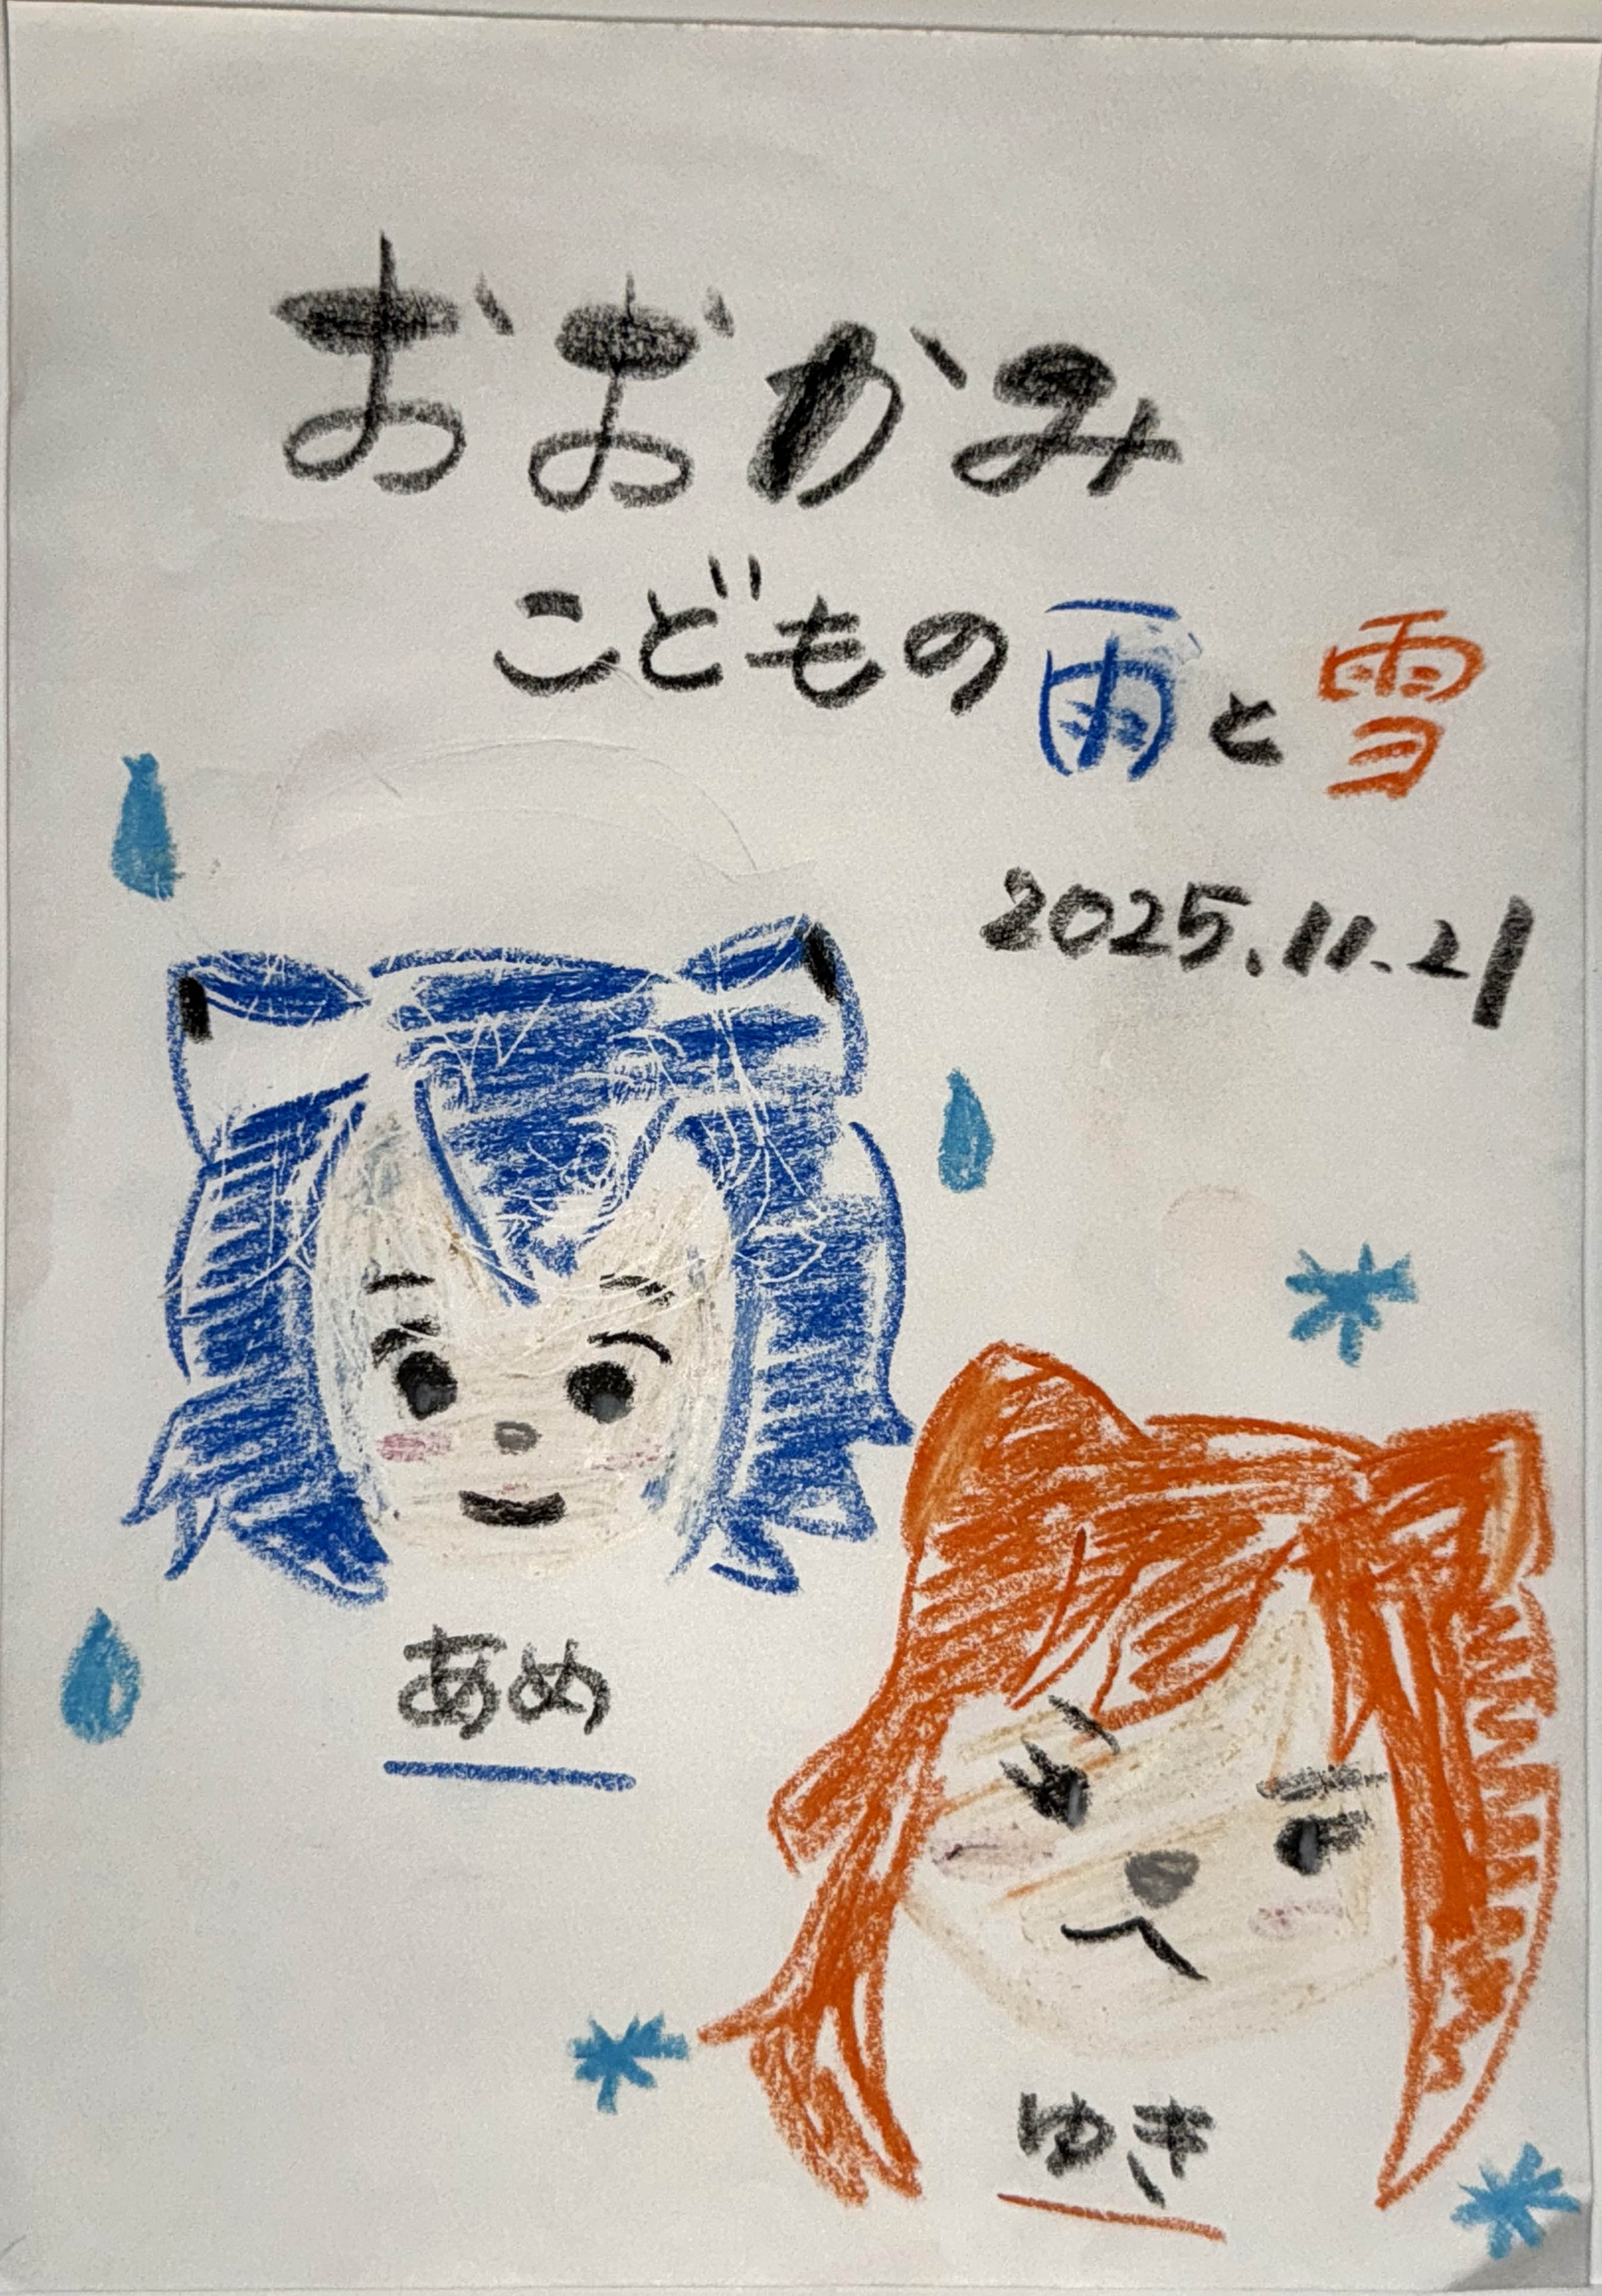 おおかみ
こどもの雨と雪
2025.11.21
あめ
ゆき